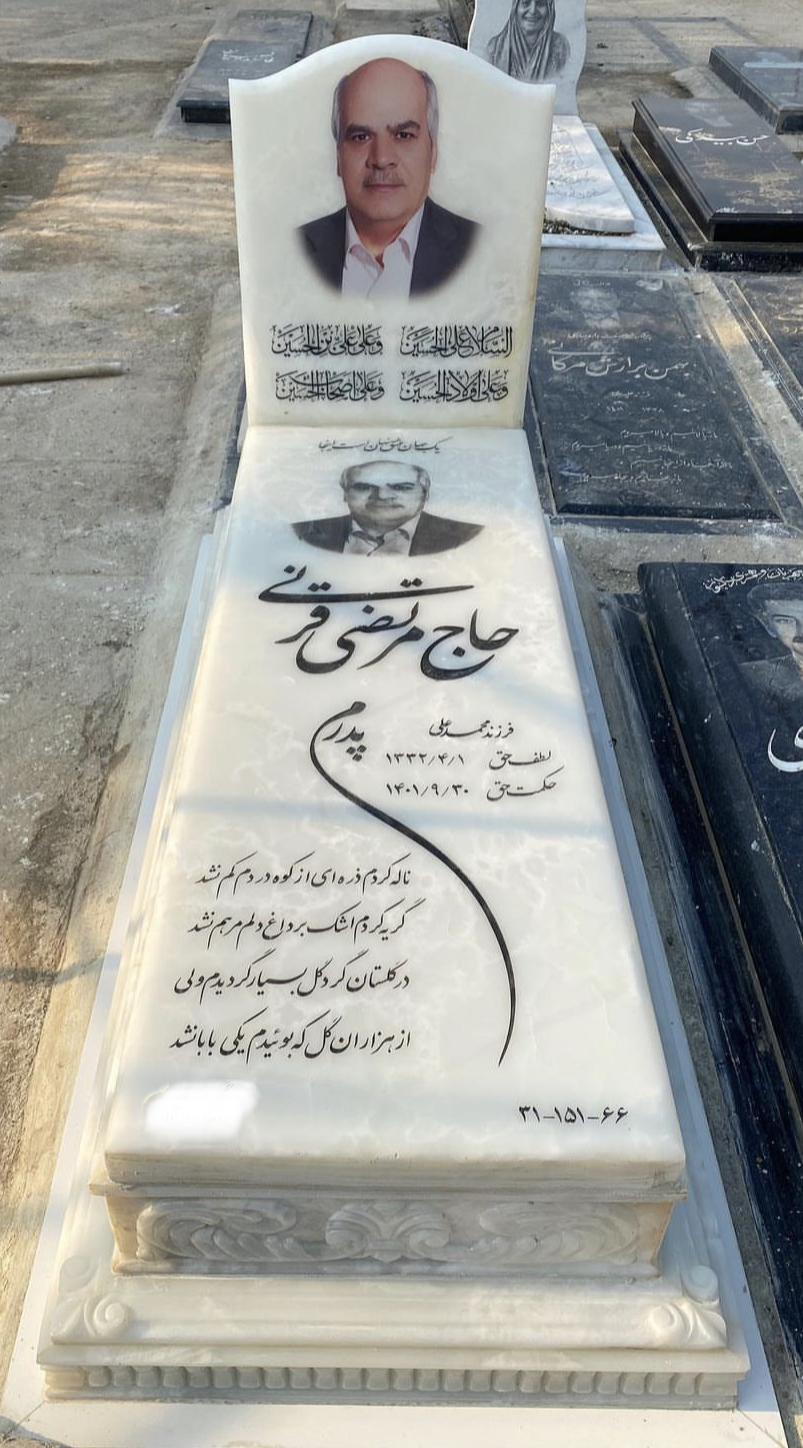 السلام علی الحسین وعلی علی بن الحسین
وعلی اولاد الحسین وعلی اصحاب الحسین
حاج مرتضی قرنی
پدرم
فرزند محمدعلی
لطف حق ۱۳۳۲/۴/۱
حکمت حق ۱۴۰۱/۹/۳۰
ناله کردم ذره ای از کوه دردم کم نشد
گریه کردم اشک بر داغ دلم مرهم نشد
در گلستان گرد گل بسیار گردیدم ولی
از هزاران گل که بوئیدم یکی بابا نشد
۳۱-۱۵۱-۶۶